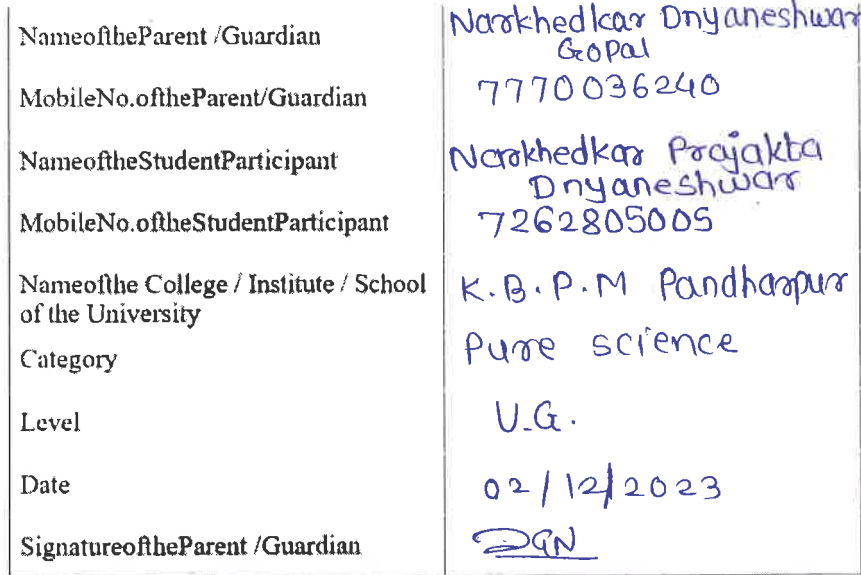 NameoftheParent /Guardian
Narkhedkar Dnyaneshwar
Gopal
MobileNo.oftheParent/Guardian
7770036240
NameoftheStudentParticipant
Narkhedkar Prajakta
Dnyaneshwar
MobileNo.oftheStudentParticipant
7262805005
Nameofthe College / Institute / School
of the University
K.B.P.M Pandharpur
Category
Pure science
Level
U.G.
Date
02/12/2023
SignatureoftheParent /Guardian
DGN